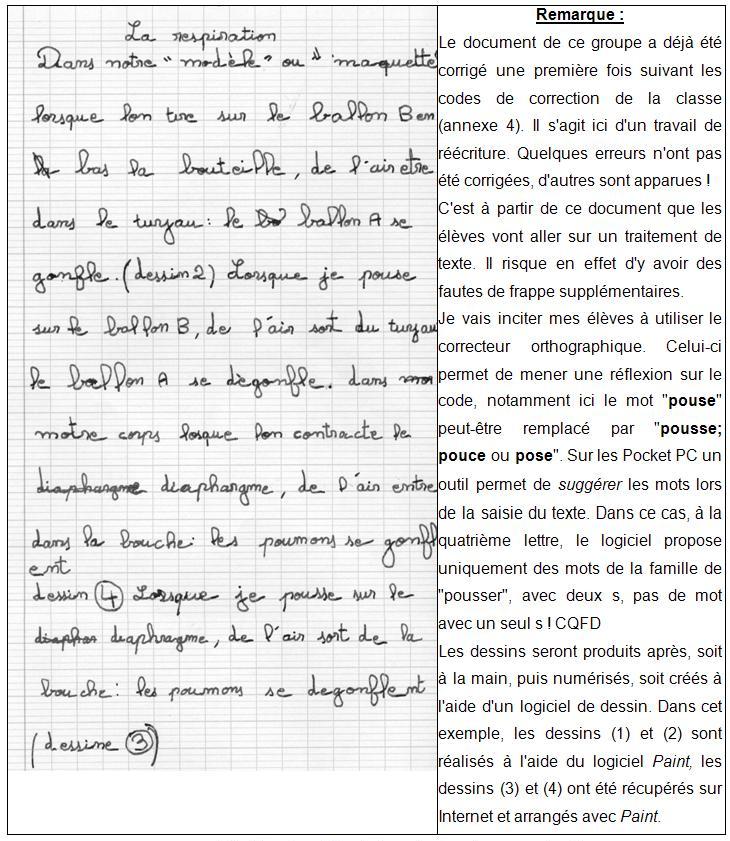 La respiration
Dans notre "modèle" ou "maquette
lorsque lon tire sur le ballon B en
bas la bouteille, de l'air etre
dans le turyau : le ballon A se
gonfle. (dessin 2) Lorsque je pouse
sur le ballon B, de l'air sort du turyau
le ballon A se dègonfle. dans
notre corps losque lon contracte le
diaphangme diaphangme, de l'air entre
dans la bouche : les poumons se gonfl
ent
dessin 4 Lorsque je pousse sur le
diaphan diaphragme, de l'air sort de la
bouche : les poumons se degonflent
(dessine 3)
Remarque :
Le document de ce groupe a déjà été
corrigé une première fois suivant les
codes de correction de la classe
(annexe 4). Il s'agit ici d'un travail de
réécriture. Quelques erreurs n'ont pas
été corrigées, d'autres sont apparues !
C'est à partir de ce document que les
élèves vont aller sur un traitement de
texte. Il risque en effet d'y avoir des
fautes de frappe supplémentaires.
Je vais inciter mes élèves à utiliser le
correcteur orthographique. Celui-ci
permet de mener une réflexion sur le
code, notamment ici le mot "pouse"
peut-être remplacé par "pousse;
pouce ou pose". Sur les Pocket PC un
outil permet de suggérer les mots lors
de la saisie du texte. Dans ce cas, à la
quatrième lettre, le logiciel propose
uniquement des mots de la famille de
"pousser", avec deux s, pas de mot
avec un seul s ! CQFD
Les dessins seront produits après, soit
à la main, puis numérisés, soit créés à
l'aide d'un logiciel de dessin. Dans cet
exemple, les dessins (1) et (2) sont
réalisés à l'aide du logiciel Paint, les
dessins (3) et (4) ont été récupérés sur
Internet et arrangés avec Paint.